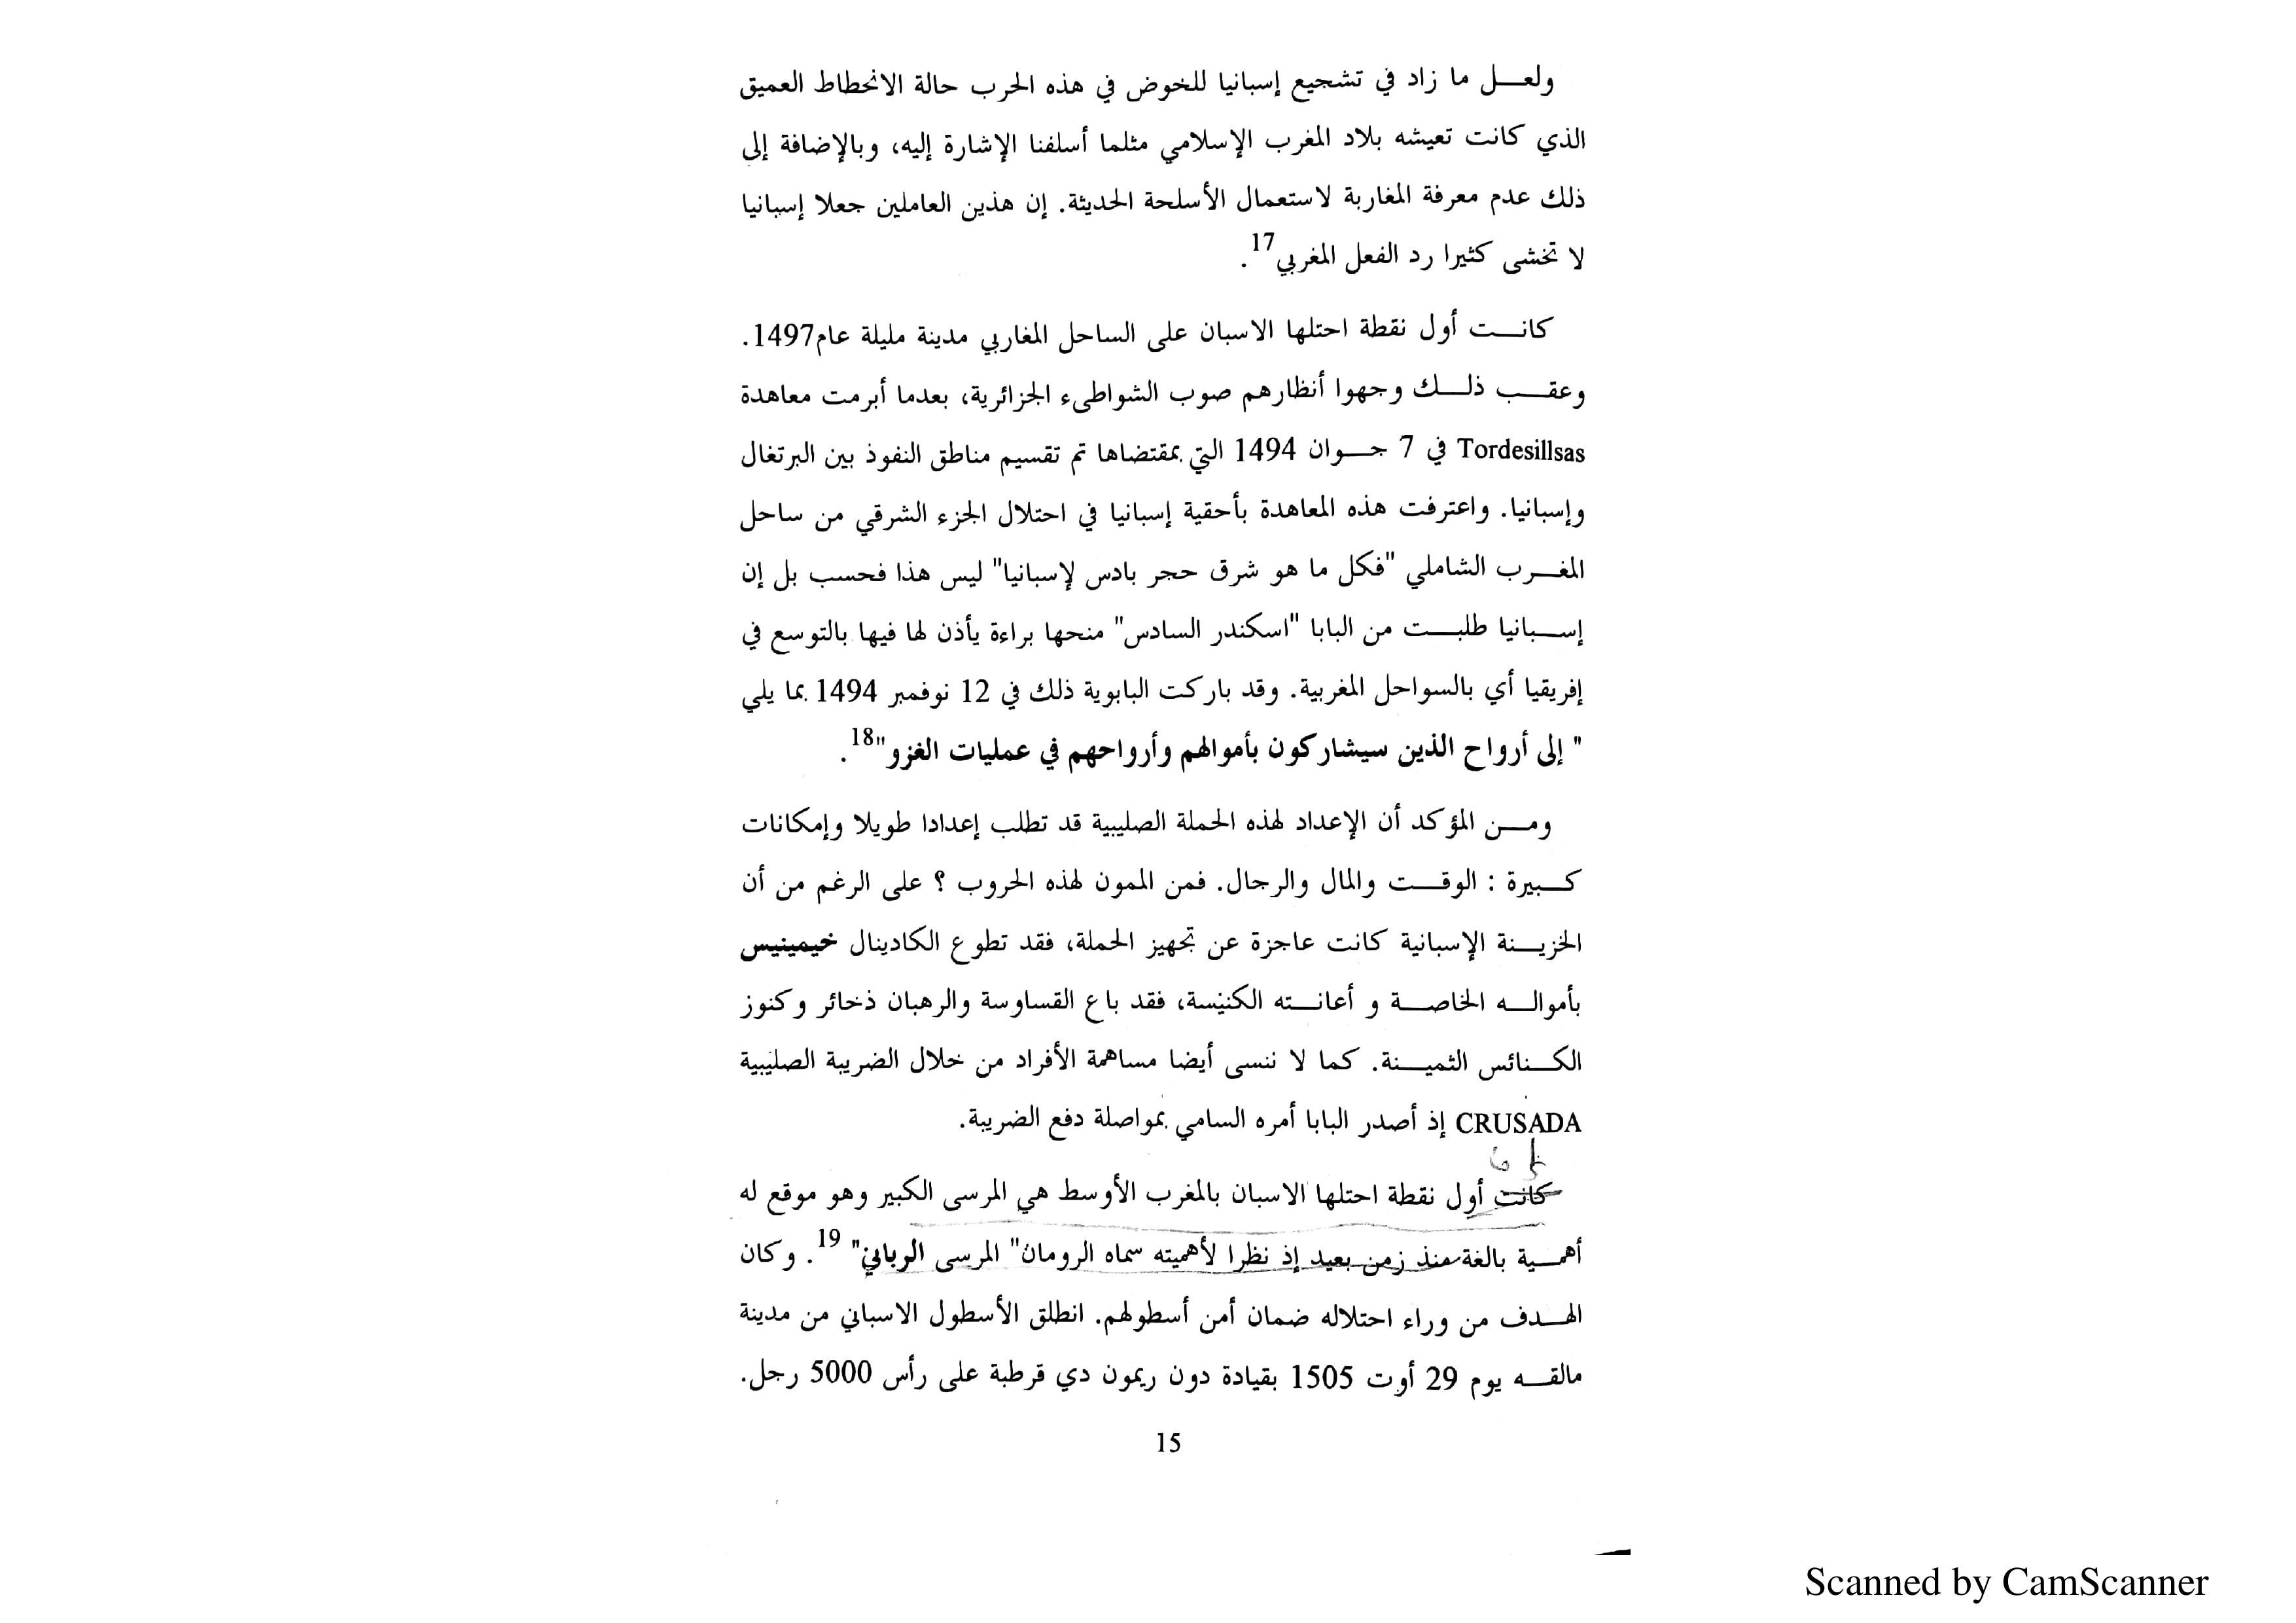 ولعل ما زاد في تشجيع إسبانيا للخوض في هذه الحرب حالة الانحطاط العميق
الذي كانت تعيشه بلاد المغرب الإسلامي مثلما أسلفنا الإشارة إليه، وبالإضافة إلى
ذلك عدم معرفة المغاربة لاستعمال الأسلحة الحديثة. إن هذين العاملين جعلا إسبانيا
لا تخشى كثيرا رد الفعل المغربي17.
كانت أول نقطة احتلها الاسبان على الساحل المغاربي مدينة مليلة عام1497.
وعقب ذلك وجهوا أنظارهم صوب الشواطىء الجزائرية، بعدما أبرمت معاهدة
Tordesillsas في 7 جوان 1494 التي بمقتضاها تم تقسيم مناطق النفوذ بين البرتغال
وإسبانيا. واعترفت هذه المعاهدة بأحقية إسبانيا في احتلال الجزء الشرقي من ساحل
المغرب الشاملي "فكل ما هو شرق حجر بادس لإسبانيا" ليس هذا فحسب بل إن
إسبانيا طلبت من البابا "اسكندر السادس" منحها براءة يأذن لها فيها بالتوسع في
إفريقيا أي بالسواحل المغربية. وقد باركت البابوية ذلك في 12 نوفمبر 1494 بما يلي
" إلى أرواح الذين سيشاركون بأموالهم وأرواحهم في عمليات الغزو"18.
ومن المؤكد أن الإعداد لهذه الحملة الصليبية قد تطلب إعدادا طويلا وإمكانات
كبيرة : الوقت والمال والرجال. فمن الممون لهذه الحروب ؟ على الرغم من أن
الخزينة الإسبانية كانت عاجزة عن تجهيز الحملة، فقد تطوع الكادينال خيمينيس
بأمواله الخاصة و أعانته الكنيسة، فقد باع القساوسة والرهبان ذخائر وكنوز
الكنائس الثمينة. كما لا ننسى أيضا مساهمة الأفراد من خلال الضريبة الصليبية
CRUSADA إذ أصدر البابا أمره السامي بمواصلة دفع الضريبة.
كانت أول نقطة احتلها الاسبان بالمغرب الأوسط هي المرسى الكبير وهو موقع له
أهمية بالغة منذ زمن بعيد إذ نظرا لأهميته سماه الرومان" المرسى الرباني" 19. وكان
الهدف من وراء احتلاله ضمان أمن أسطولهم. انطلق الأسطول الاسباني من مدينة
مالقه يوم 29 أوت 1505 بقيادة دون ريمون دي قرطبة على رأس 5000 رجل.
15
Scanned by CamScanner